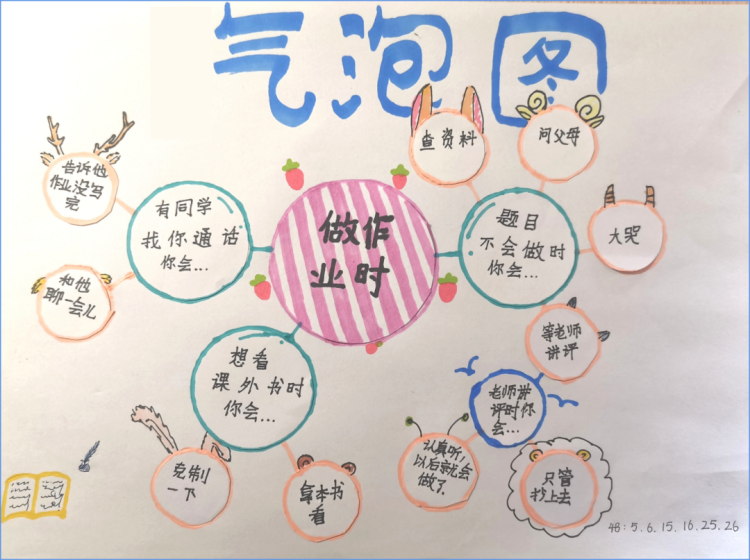 气泡图
做作
业时
有同学
找你通话
你会...
告诉他
作业没写
完
和他
聊一会儿
想看
课外书时
你会...
克制
一下
拿本书
看
题目
不会做时
你会...
查资料
问父母
大哭
等老师
讲评
老师讲
评时你
会...
认真听!
以后就会
做了.
只管
抄上去
4B:5.6.15.16.25.26